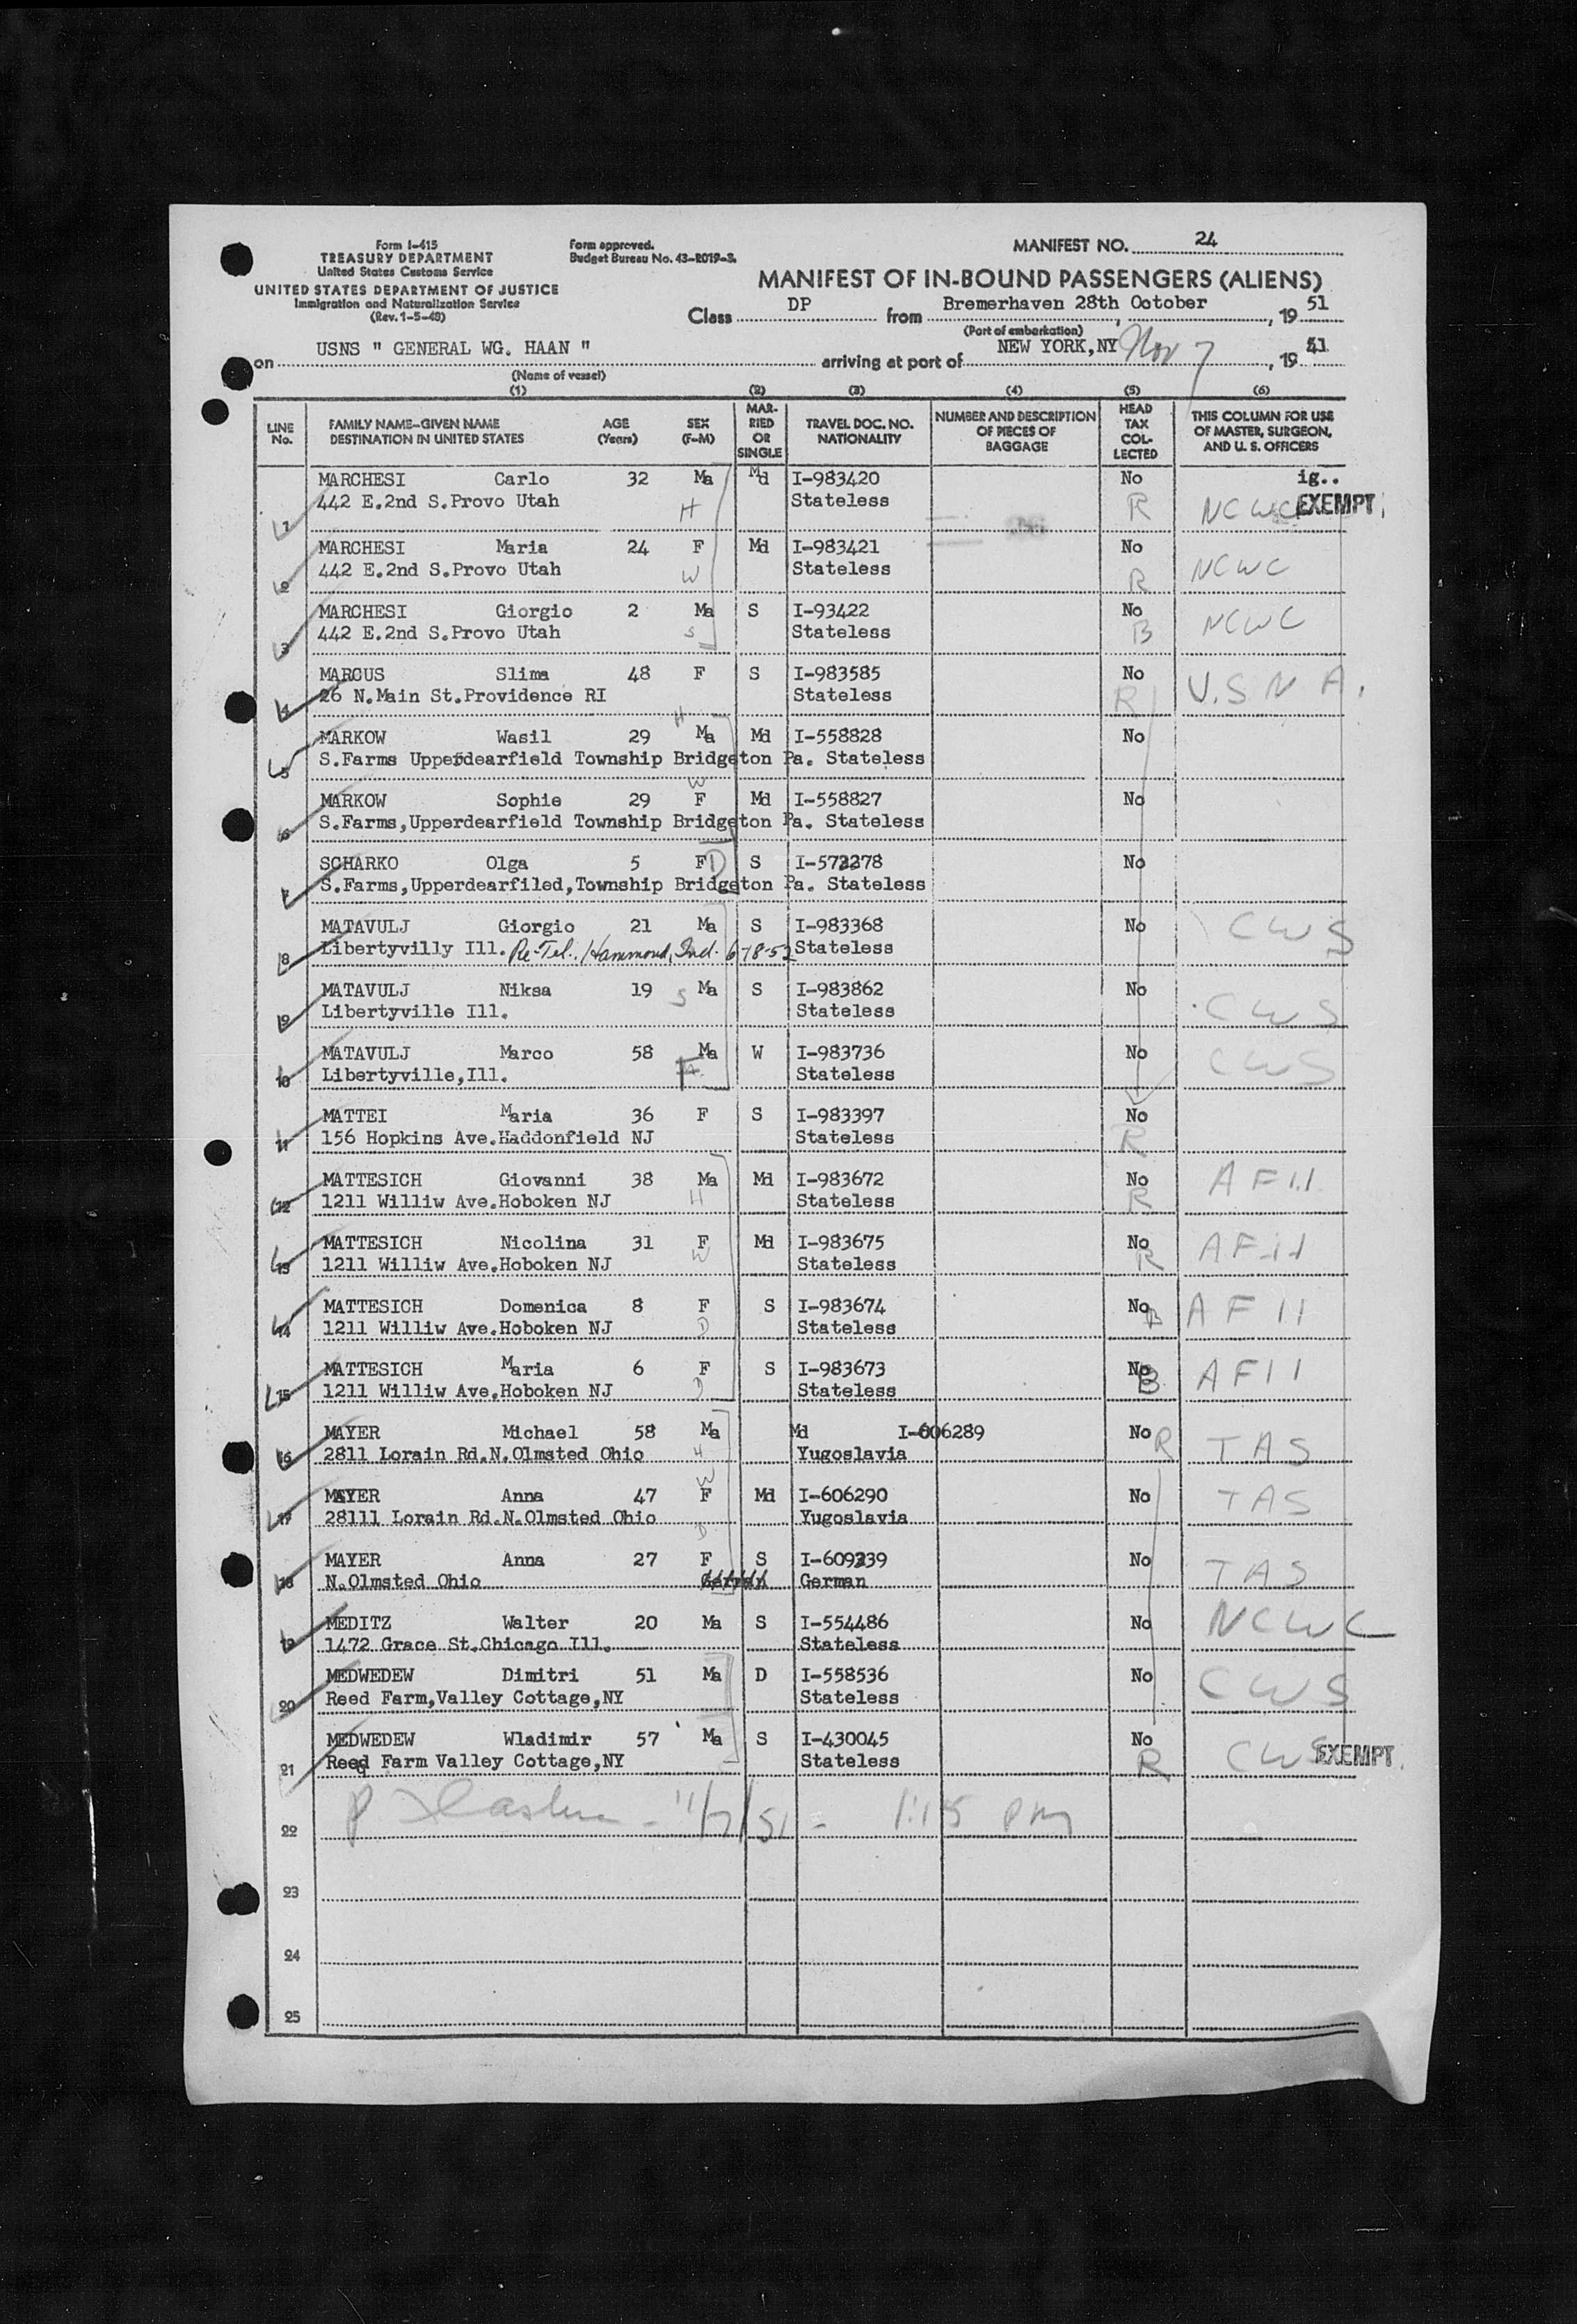 Form I-415
TREASURY DEPARTMENT
United States Customs Service
UNITED STATES DEPARTMENT OF JUSTICE
Immigration and Naturalization Service
(Rev. 1-5-49)
Form approved.
Budget Bureau No. 43-R019-3.
MANIFEST NO. 24
MANIFEST OF IN-BOUND PASSENGERS (ALIENS)
Class DP from Bremerhaven 28th October, 19 51
(Port of embarkation)
on USNS " GENERAL WG. HAAN " arriving at port of NEW YORK,NY Nov 7, 19 51
(Name of vessel)
(1) (2) (3) (4) (5) (6)
LINE No. FAMILY NAME-GIVEN NAME DESTINATION IN UNITED STATES AGE (Years) SEX (F-M) MAR-RIED OR SINGLE TRAVEL DOC. NO. NATIONALITY NUMBER AND DESCRIPTION OF PIECES OF BAGGAGE HEAD TAX COL-LECTED THIS COLUMN FOR USE OF MASTER, SURGEON, AND U. S. OFFICERS
MARCHESI Carlo 32 Ma Md I-983420 No ig..
1 442 E.2nd S.Provo Utah H Stateless R NCWC EXEMPT
MARCHESI Maria 24 F Md I-983421 No
2 442 E.2nd S.Provo Utah W Stateless R NCWC
MARCHESI Giorgio 2 Ma S I-93422 No
3 442 E.2nd S.Provo Utah S Stateless B NCWC
MARCUS Slima 48 F S I-983585 No
4 26 N.Main St.Providence RI Stateless R U.S N A.
MARKOW Wasil 29 H Ma Md I-558828 No
5 S.Farms Upperdearfield Township Bridgeton Pa. Stateless
MARKOW Sophie 29 W F Md I-558827 No
6 S.Farms,Upperdearfield Township Bridgeton Pa. Stateless
SCHARKO Olga 5 F D S I-572278 No
7 S.Farms,Upperdearfiled,Township Bridgeton Pa. Stateless
MATAVULJ Giorgio 21 Ma S I-983368 No CWS
8 Libertyvilly Ill. Re-Tel., Hammond, Ind. 6-18-52 Stateless
MATAVULJ Niksa 19 S Ma S I-983862 No
9 Libertyville Ill. Stateless CWS
MATAVULJ Marco 58 Ma W I-983736 No
10 Libertyville,Ill. F Stateless CWS
MATTEI Maria 36 F S I-983397 No
11 156 Hopkins Ave.Haddonfield NJ Stateless R
MATTESICH Giovanni 38 Ma Md I-983672 No AFII
12 1211 Williw Ave.Hoboken NJ H Stateless R
MATTESICH Nicolina 31 F Md I-983675 No AFII
13 1211 Williw Ave.Hoboken NJ W Stateless R
MATTESICH Domenica 8 F S I-983674 No AFII
14 1211 Williw Ave.Hoboken NJ D Stateless B
MATTESICH Maria 6 F S I-983673 No AFII
15 1211 Williw Ave.Hoboken NJ D Stateless B
MAYER Michael 58 Ma Md I-606289 No R
16 2811 Lorain Rd.N.Olmsted Ohio H Yugoslavia TAS
MAYER Anna 47 W F Md I-606290 No TAS
17 28111 Lorain Rd.N.Olmsted Ohio Yugoslavia
MAYER Anna 27 D F S I-609339 No
18 N.Olmsted Ohio German German TAS
MEDITZ Walter 20 Ma S I-554486 No NCWC
19 1472 Grace St.Chicago Ill. Stateless
MEDWEDEW Dimitri 51 Ma D I-558536 No
20 Reed Farm,Valley Cottage,NY Stateless CWS
MEDWEDEW Wladimir 57 Ma S I-430045 No
21 Reed Farm Valley Cottage,NY Stateless R CWS EXEMPT
22 11/7/51 - 1:15 PM
23
24
25